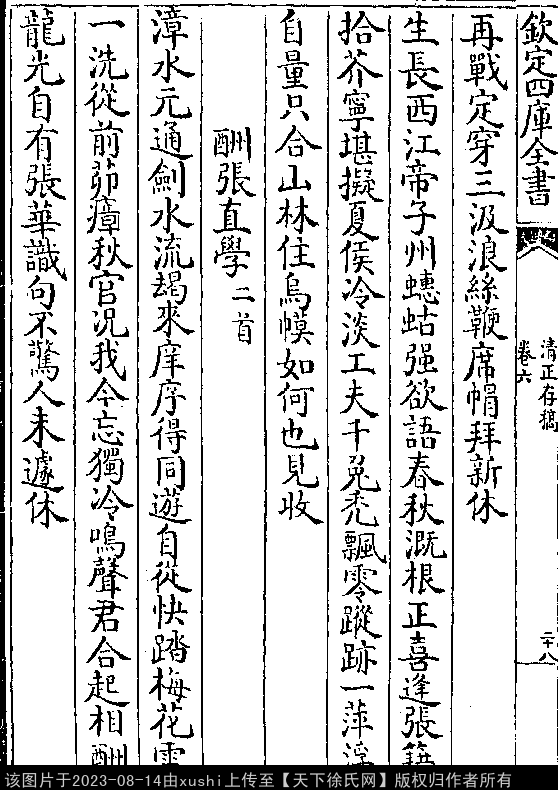 欽定四庫全書
清正存稿
卷六
二十八
再戰定穿三汲浪絲鞭席帽拜新休
生長西江帝子州蟪蛄强欲語春秋溉根正喜逢張籍
拾芥寧堪擬夏侯冷淡工夫千兔禿飄零蹤跡一萍浮
自量只合山林住烏㡌如何也見收
酬張直學二首
漳水元通劍水流朅來庠序得同遊自從快踏梅花雪
一洗從前茆瘴秋官况我今忘獨冷鳴聲君合起相酬
龍光自有張華識句不驚人未遽休
该图片于2023-08-14由xushi上传至【天下徐氏网】版权归作者所有